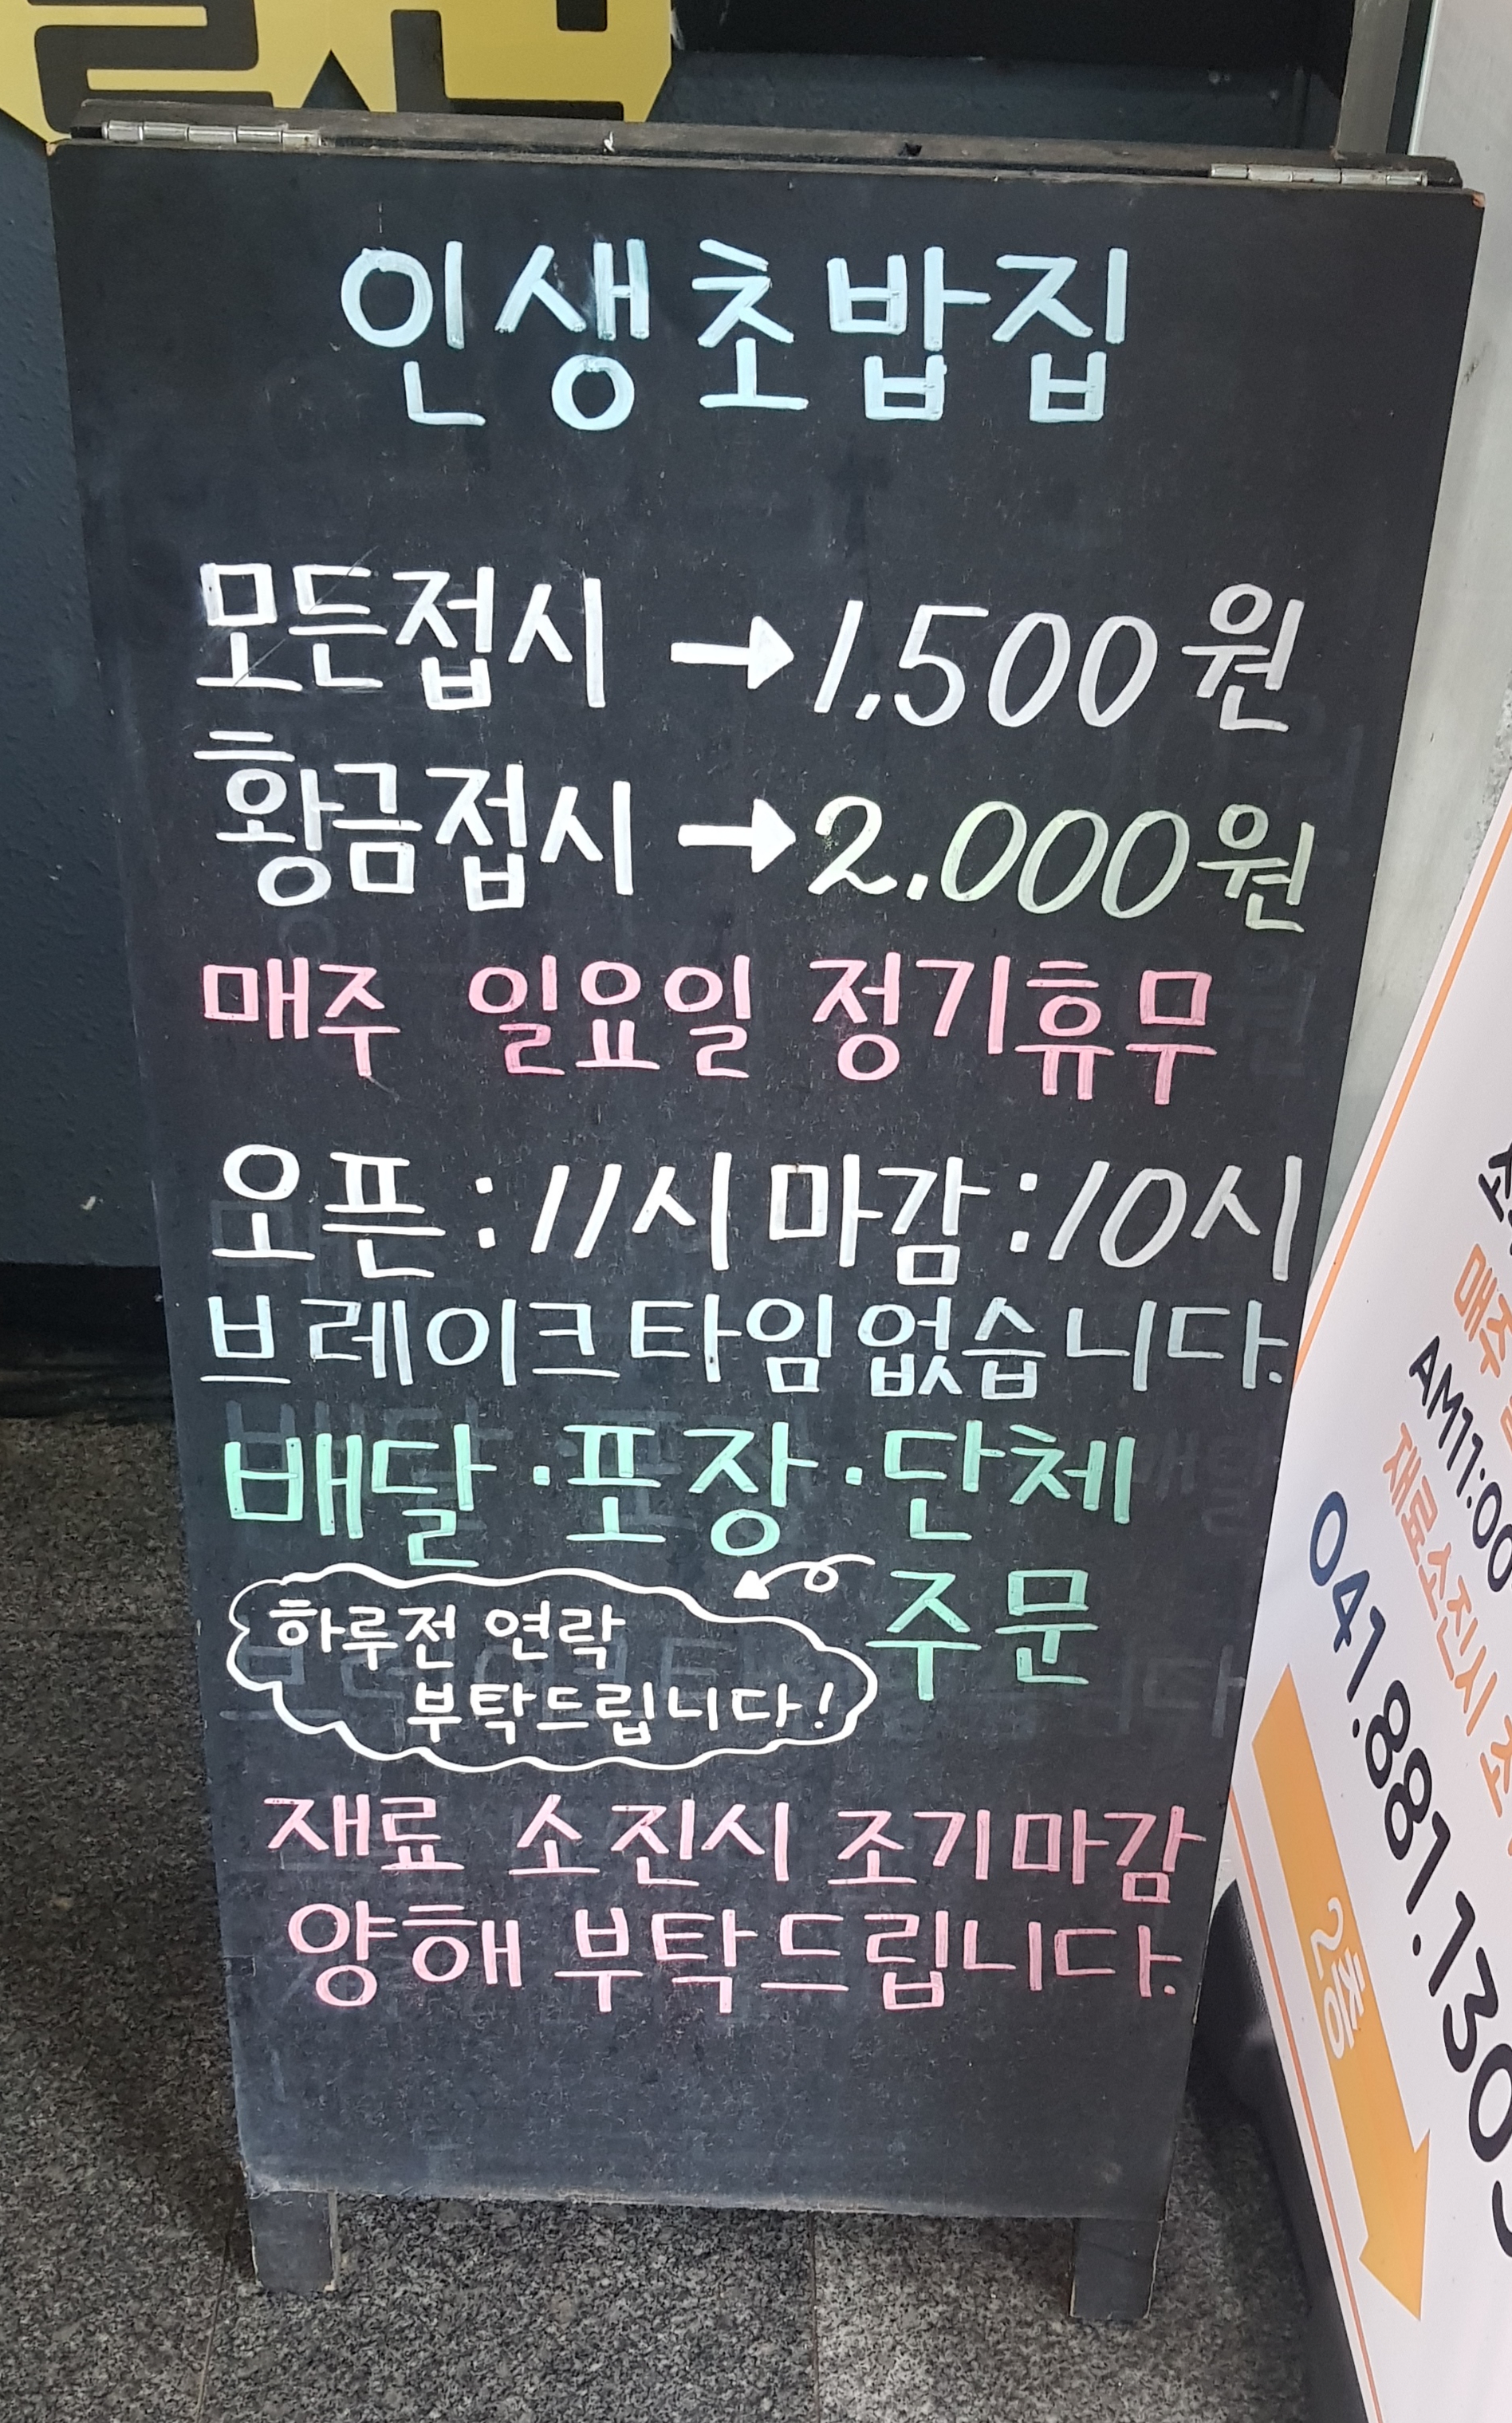 인생초밥집
모든접시 → 1,500원
황금접시 → 2.000원
매주 일요일 정기휴무
오픈 : 11시 마감 : 10시
브레이크타임 없습니다.
배달·포장·단체
주문
하루전 연락
부탁드립니다!
재료 소진시 조기마감
양해 부탁드립니다.
매주
AM11:00
재료소진시
041.881.130
2층